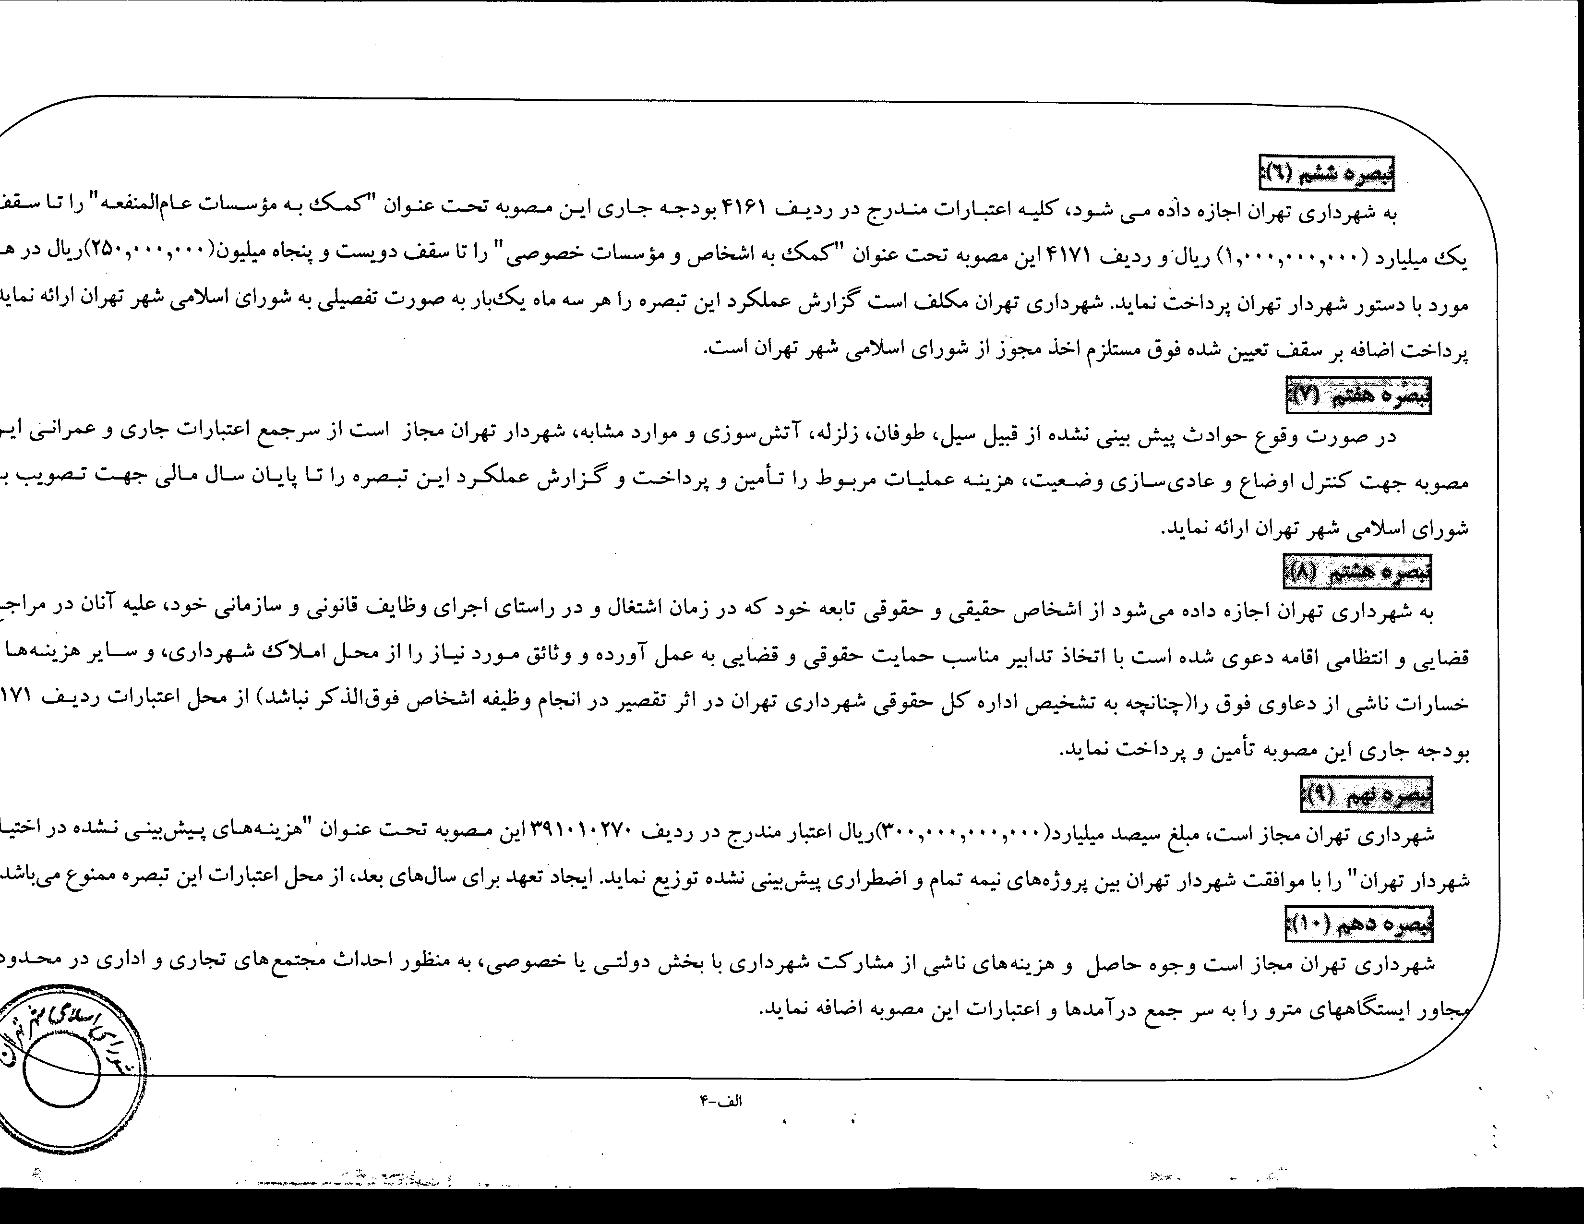 تبصره ششم (۶):
به شهرداری تهران اجازه داده می شود، کلیه اعتبارات مندرج در ردیف ۴۱۶۱ بودجه جاری این مصوبه تحت عنوان "کمک به مؤسسات عام‌المنفعه" را تا سقف
یک میلیارد (۱,۰۰۰,۰۰۰,۰۰۰) ریال و ردیف ۴۱۷۱ این مصوبه تحت عنوان "کمک به اشخاص و مؤسسات خصوصی" را تا سقف دویست و پنجاه میلیون(۲۵۰,۰۰۰,۰۰۰)ریال در
مورد با دستور شهردار تهران پرداخت نماید. شهرداری تهران مکلف است گزارش عملکرد این تبصره را هر سه ماه یک‌بار به صورت تفصیلی به شورای اسلامی شهر تهران ارائه نماید
پرداخت اضافه بر سقف تعیین شده فوق مستلزم اخذ مجوز از شورای اسلامی شهر تهران است.
تبصره هفتم (۷):
در صورت وقوع حوادث پیش بینی نشده از قبیل سیل، طوفان، زلزله، آتش‌سوزی و موارد مشابه، شهردار تهران مجاز است از سرجمع اعتبارات جاری و عمرانی
مصوبه جهت کنترل اوضاع و عادی‌سازی وضعیت، هزینه عملیات مربوط را تأمین و پرداخت و گزارش عملکرد این تبصره را تا پایان سال مالی جهت تصویب
شورای اسلامی شهر تهران ارائه نماید.
تبصره هشتم (۸):
به شهرداری تهران اجازه داده می‌شود از اشخاص حقیقی و حقوقی تابعه خود که در زمان اشتغال و در راستای اجرای وظایف قانونی و سازمانی خود، علیه آنان در
قضایی و انتظامی اقامه دعوی شده است با اتخاذ تدابیر مناسب حمایت حقوقی و قضایی به عمل آورده و وثائق مورد نیاز را از محل املاک شهرداری، و سایر هزینه‌ها
خسارات ناشی از دعاوی فوق را(چنانچه به تشخیص اداره کل حقوقی شهرداری تهران در اثر تقصیر در انجام وظیفه اشخاص فوق‌الذکر نباشد) از محل اعتبارات ردیف ۱۷۱
بودجه جاری این مصوبه تأمین و پرداخت نماید.
تبصره نهم (۹):
شهرداری تهران مجاز است، مبلغ سیصد میلیارد(۳۰۰,۰۰۰,۰۰۰,۰۰۰)ریال اعتبار مندرج در ردیف ۳۹۱۰۱۰۲۷۰ این مصوبه تحت عنوان "هزینه‌های پیش‌بینی نشده در
شهردار تهران" را با موافقت شهردار تهران بین پروژه‌های نیمه تمام و اضطراری پیش‌بینی نشده توزیع نماید. ایجاد تعهد برای سال‌های بعد، از محل اعتبارات این تبصره ممنوع می‌باشد
تبصره دهم (۱۰):
شهرداری تهران مجاز است وجوه حاصل و هزینه‌های ناشی از مشارکت شهرداری با بخش دولتی یا خصوصی، به منظور احداث مجتمع‌های تجاری و اداری در
مجاور ایستگاههای مترو را به سر جمع درآمدها و اعتبارات این مصوبه اضافه نماید.
شورای اسلامی شهر تهران
الف-۴